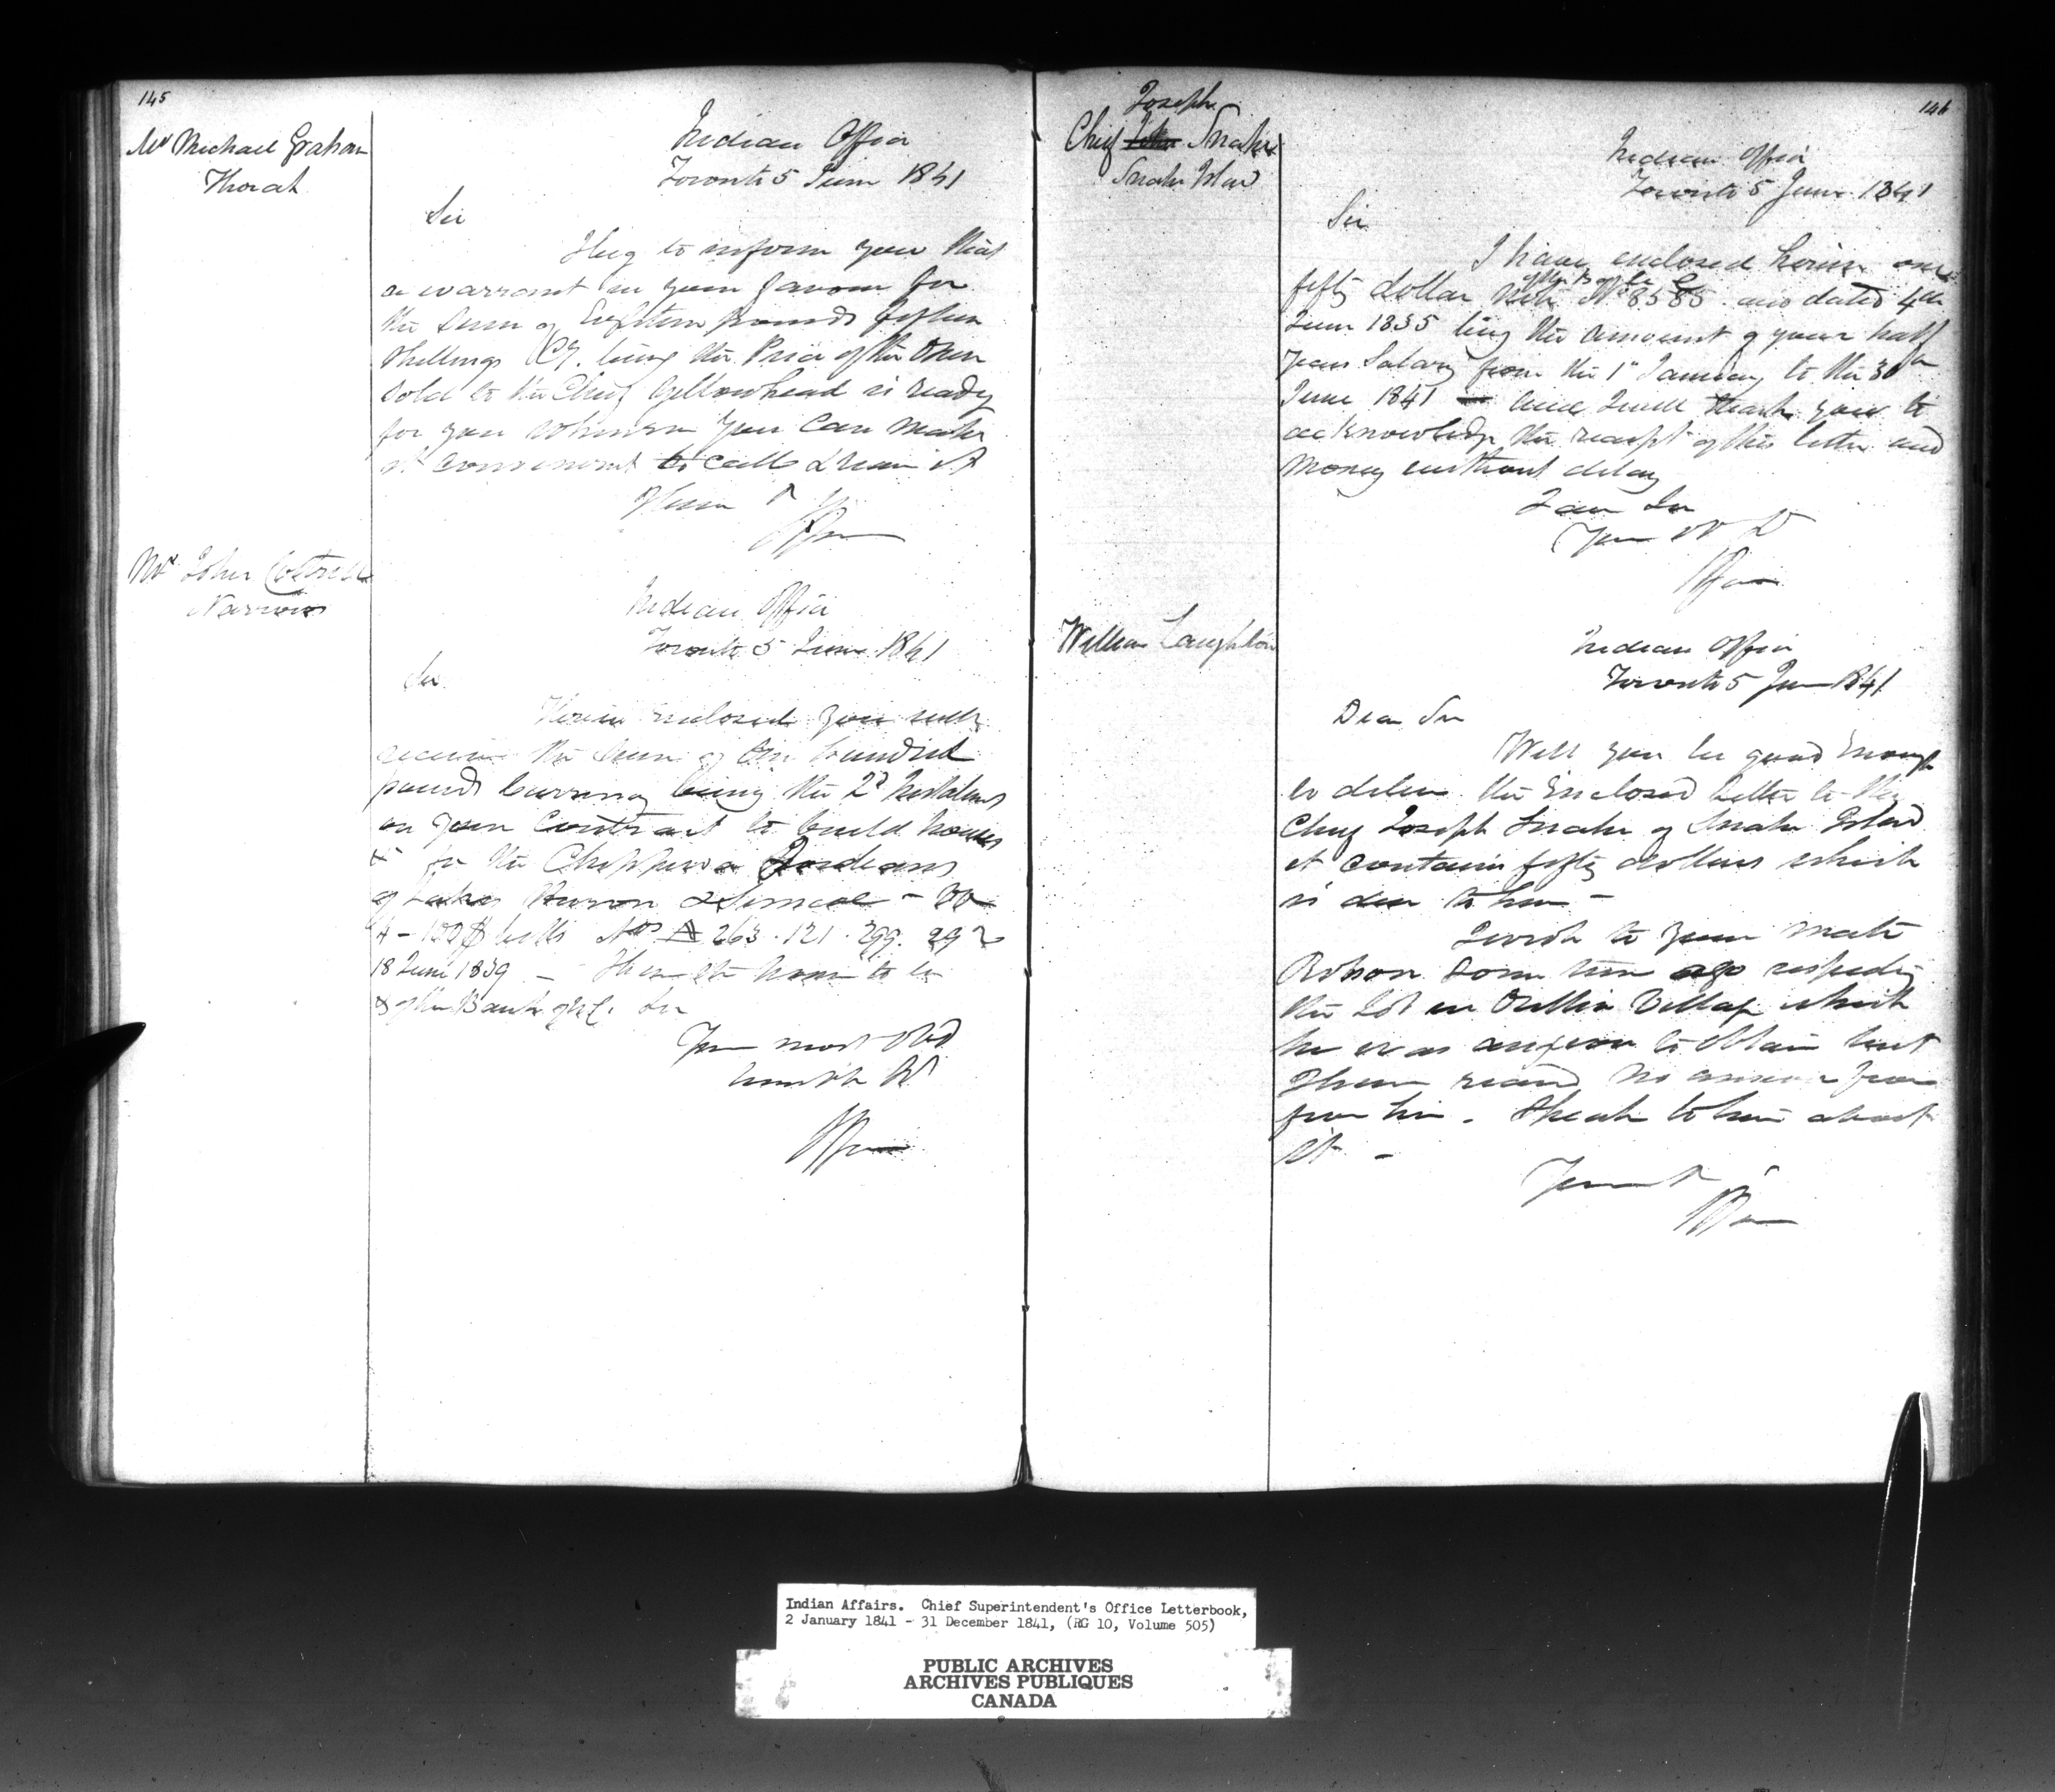 145
Mr Michael Graham
Thorah
Indian Office
Toronto 5 June 1841
Sir
I beg to inform you that
a warrant in your favour for
the sum of Eighteen pounds fifteen
shillings Cy. being the Price of the Oxen
sold to the Chief Yellowhead is ready
for you whenever you can make
it convenient to call & receive it
I have
Mr John Cotterell
Narrows
Indian Office
Toronto 5 June 1841
Sir
Herein Enclosed you will
receive the sum of One hundred
pounds Currency being the 2d Instalment
on your Contract to build houses
x for the Chippewa Indians
of Lakes Huron & Simcoe -
4 - 100 $ bills Nos A 263 . 121 . 299 . 292
18 June 1839 - I have the honor to be
x of the Bank of U.C. Sir
Your most Obd
humble St
146
Joseph
Chief John Snake
Snake Island
Indian Office
Toronto 5 June 1841
Sir
I have enclosed herein one
of the B of U. C
fifty dollar Note No 8585 and dated 4th
June 1835 being the amount of your half
years Salary from the 1st January to the 30th
June 1841 and I will thank you to
acknowledge the receipt of this letter and
Money without delay
I am Sir
Your
William Laughton
Indian Office
Toronto 5 June 1841
Dear Sir
Will you be good Enough
to deliver the Enclosed letter to the
Chief Joseph Snake of Snake Island
it contains fifty dollars which
is due to him -
I wrote to your Mate
Robson some time ago respecting
the Lot in Orillia Village which
he was anxious to obtain but
I have recd no answer from
from him . Speak to him about
it -
Indian Affairs. Chief Superintendent's Office Letterbook,
2 January 1841 - 31 December 1841, (RG 10, Volume 505)
PUBLIC ARCHIVES
ARCHIVES PUBLIQUES
CANADA